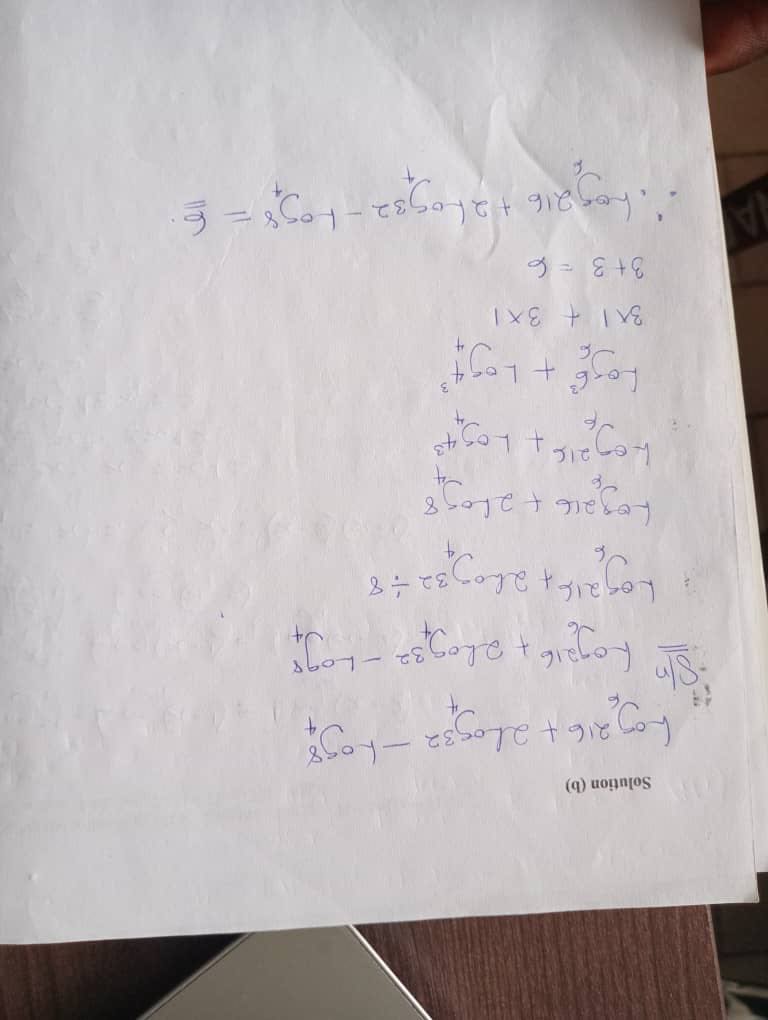 Solution (b)
Log₆216 + 2Log₄32 – Log₄8
S/n Log₆216 + 2Log₄32 – Log₄8
Log₆216 + 2Log₄32 ÷ 8
Log₆216 + 2Log₄8
Log₆216 + Log₄4³
Log₆6³ + Log₄4³
3×1 + 3×1
3+3 = 6
∴ Log₆216 + 2Log₄32 – Log₄8 = 6.